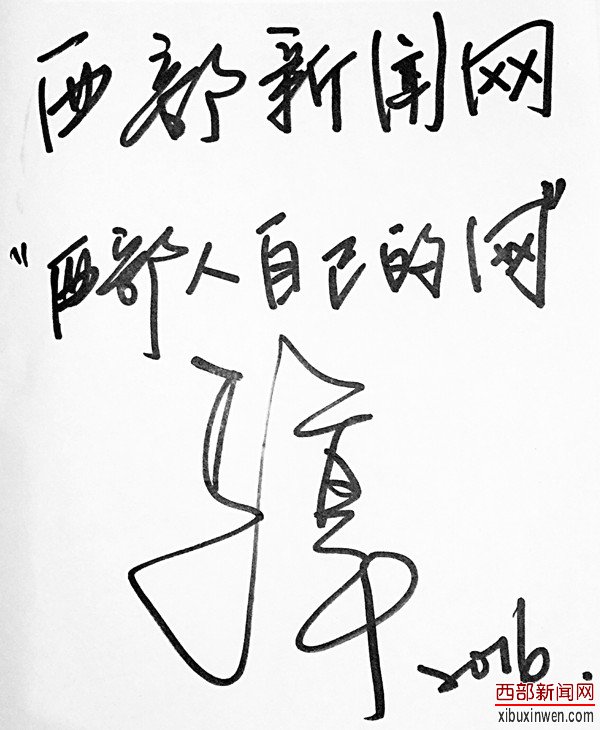 西部新闻网
"西部人自己的网"
2016.
西部新闻网
xibuxinwen.com